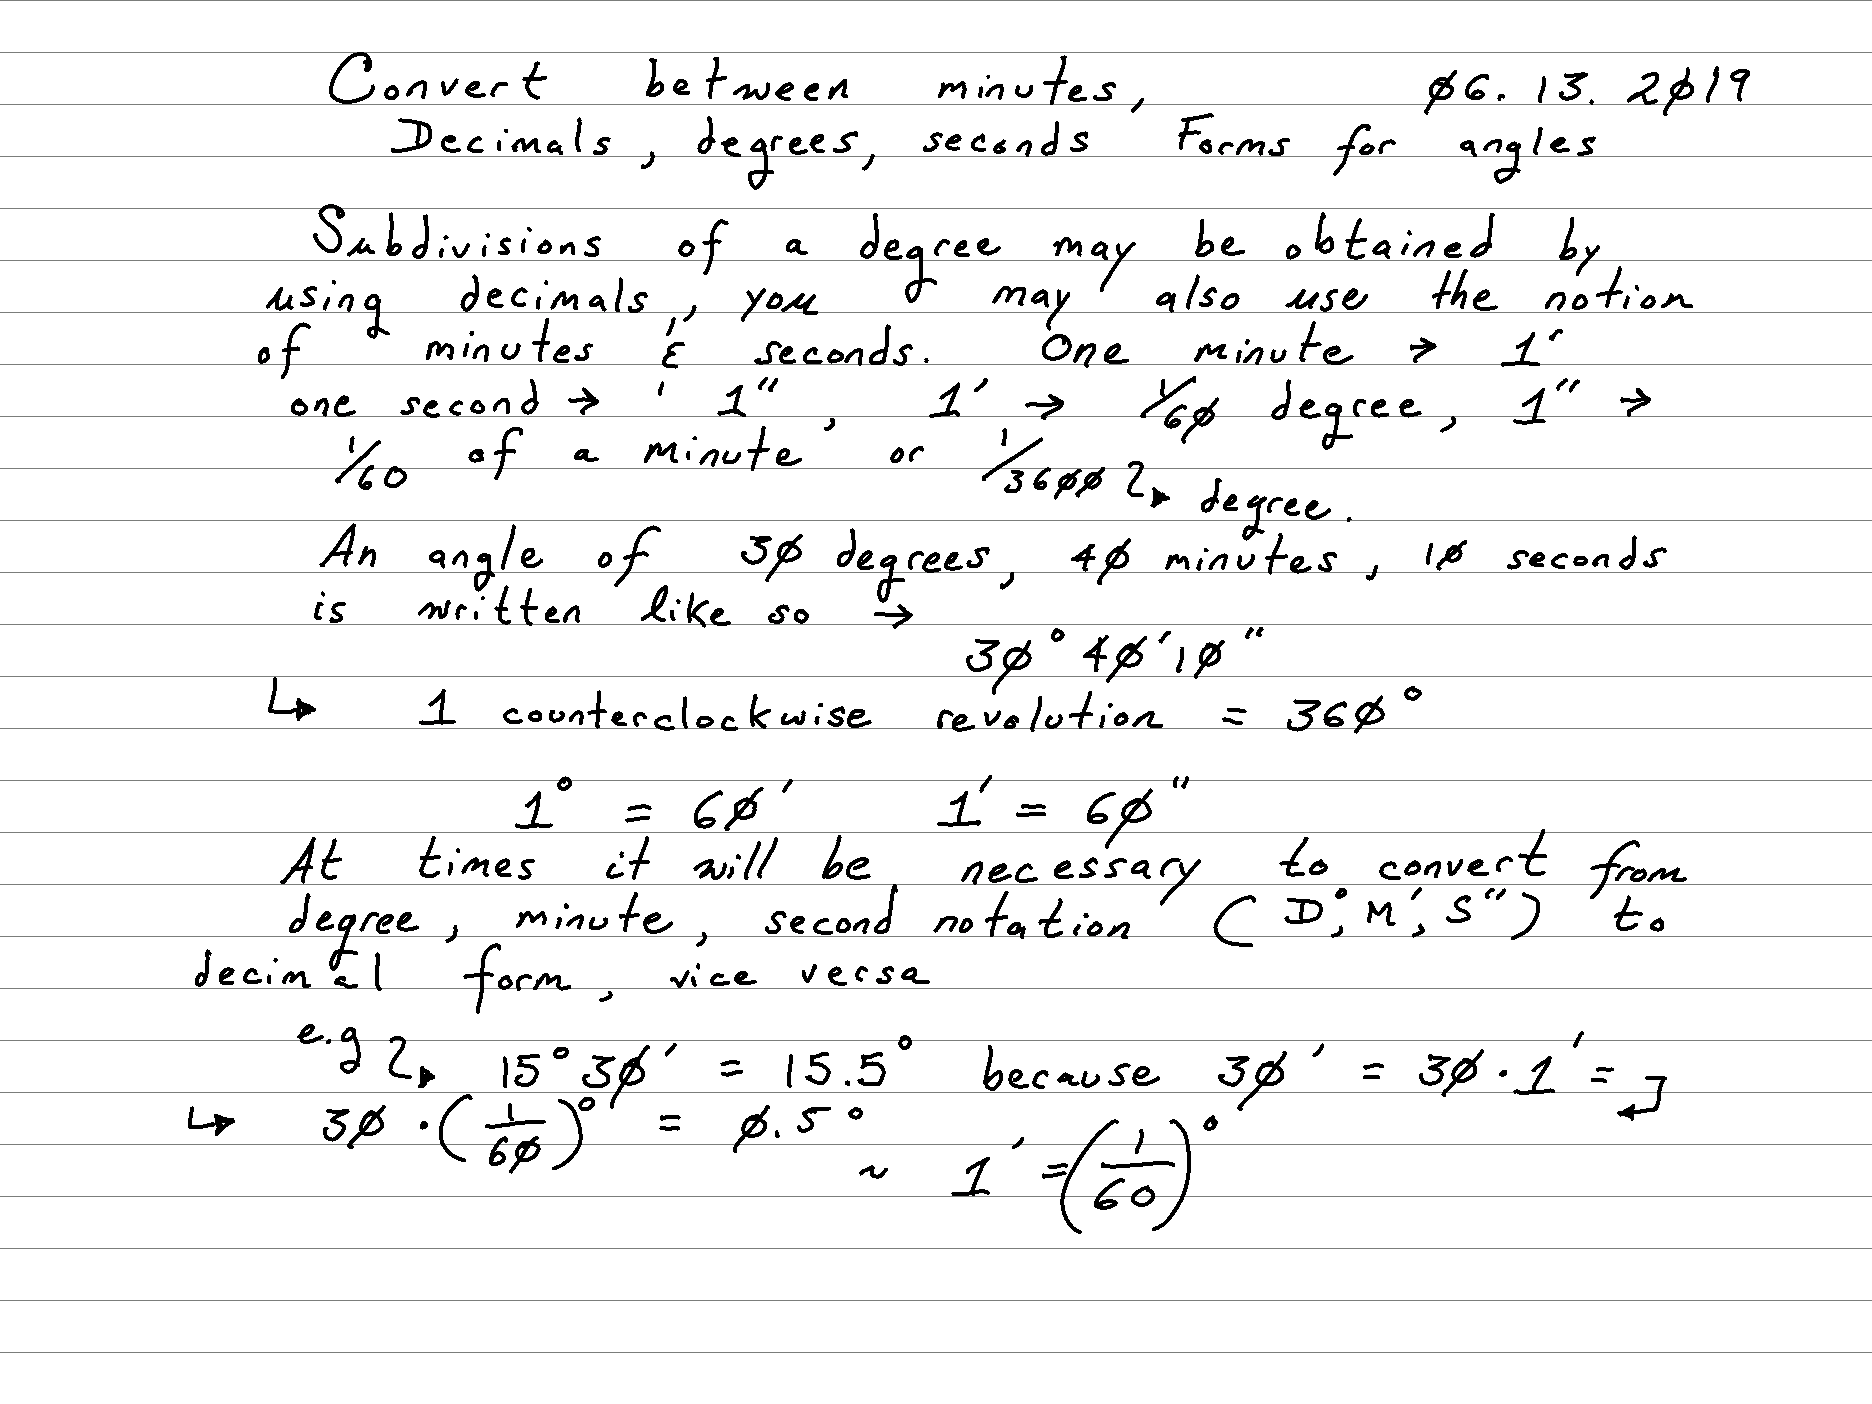 Convert between minutes, Ø6. 13. 2Ø19
Decimals, degrees, seconds Forms for angles
Subdivisions of a degree may be obtained by
using decimals, you may also use the notion
of minutes & seconds. One minute → 1'
one second → 1", 1' → 1/6Ø degree, 1" →
1/60 of a minute or 1/36ØØ ↴ degree.
An angle of 3Ø degrees, 4Ø minutes, 1Ø seconds
is written like so →
3Ø° 4Ø' 1Ø"
↳ 1 counterclockwise revolution = 36Ø°
1° = 6Ø' 1' = 6Ø"
At times it will be necessary to convert from
degree, minute, second notation (D°, M', S") to
decimal form, vice versa
e.g ↴ 15° 3Ø' = 15.5° because 3Ø' = 3Ø · 1' = ↲
↳ 3Ø · (1/6Ø)° = Ø.5°
~ 1' = (1/60)°